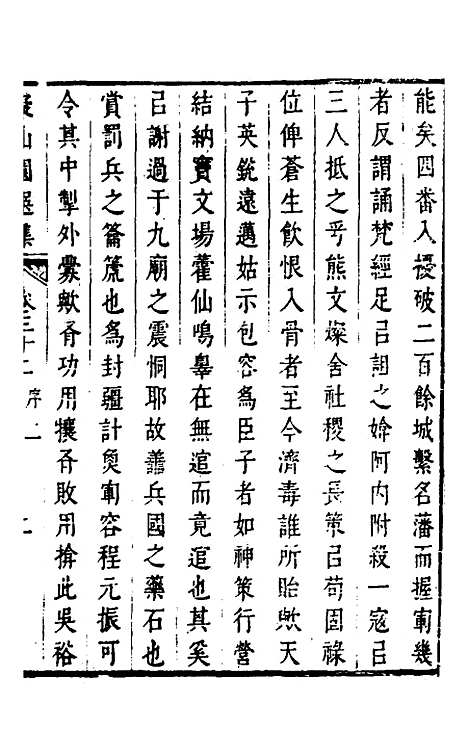 能矣四番入擾破二百餘城繫名藩而握軔幾
者反謂誦梵經足㠯詛之媕阿内附殺一寇㠯
三人抵之乎熊文燦舍社稷之長策㠯苟固祿
位俾蒼生飲恨入骨者至今濟毒誰所貽歟天
子英銳遠邁姑示包容爲臣子者如神策行營
結納竇文場藿仙鳴舉在無逭而竟逭也其奚
㠯謝過于九廟之震恫耶故善兵國之藥石也
賞罰兵之籥箎也爲封疆計奠軔容程元振可
令其中掣外釁歟胥功用攘胥敗用揜此吳裕
擬山園選集
卷三十二
序二
二